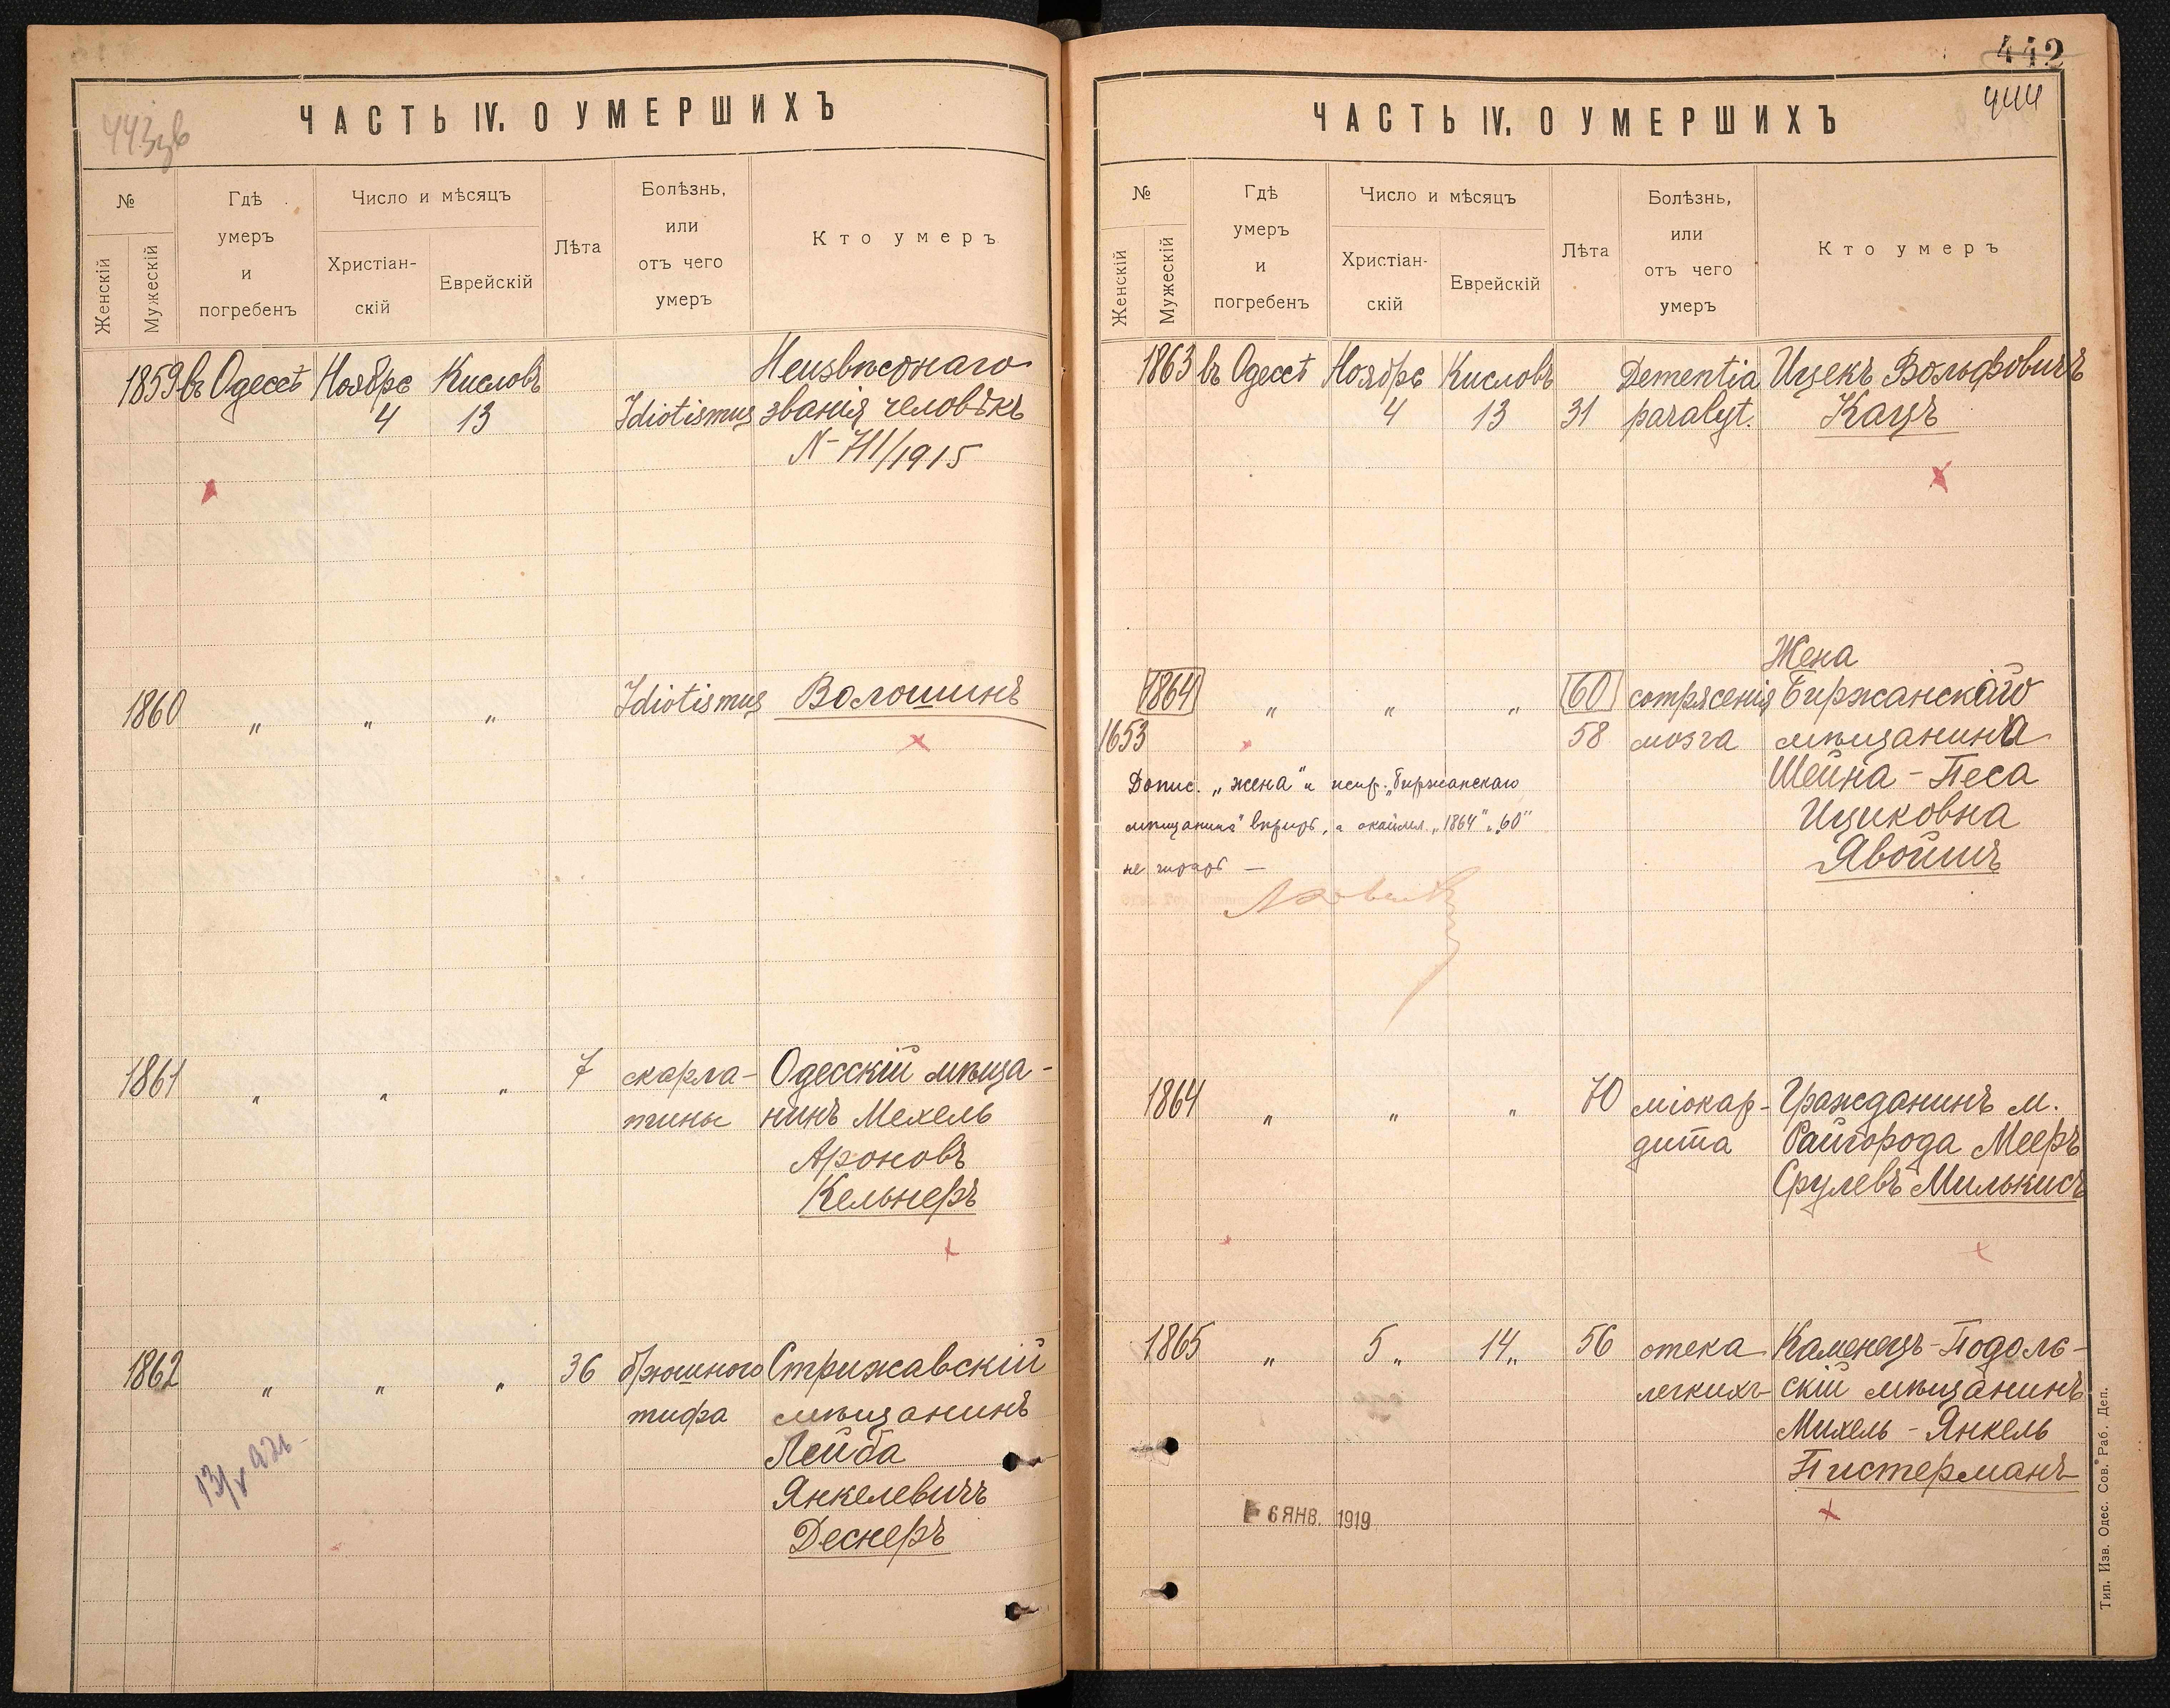 443зв
ЧАСТЬ IV. О УМЕРШИХЪ
№
Женскій
Мужескій
Гдѣ
умеръ
и
погребенъ
Число и мѣсяцъ
Христіан-
скій
Еврейскій
Лѣта
Болѣзнь,
или
отъ чего
умеръ
Кто умеръ
1859 въ Одессѣ Ноября Кисловъ Неизвѣстнаго
4 13 Idiotismus званія человѣкъ
N-711/1915
1860 " " " Idiotismus Волошинъ
1861 " " " 7 скарла- Одесскій мѣща-
тины нинъ Мехель
Ароновъ
Кельнеръ
1862 " " " 36 брюшного Стрижавскій
тифа мѣщанинъ
Лейба
Янкелевичъ
Деснеръ
442
444
ЧАСТЬ IV. О УМЕРШИХЪ
№
Женскій
Мужескій
Гдѣ
умеръ
и
погребенъ
Число и мѣсяцъ
Христіан-
скій
Еврейскій
Лѣта
Болѣзнь,
или
отъ чего
умеръ
Кто умеръ
1863 въ Одессѣ Ноября Кисловъ Dementia Ицекъ Вольфовичъ
4 13 31 paralyt. Кацъ
Жена
1864 " " " 60 сотрясенія Биржанскаго
1653 58 мозга мѣщанина
Шейна-Песа
Ициковна
Явоишъ
Допис. „жена" и испр. „биржанскаго
мѣщанина" вѣрить, а окаймл. „1864" и „60"
не читать —
1864 " " " 70 міокар- Гражданинъ м.
дита Райгорода Мееръ
Срулевъ Милькисъ
1865 " 5 " 14 " 56 отека Каменецъ-Подоль-
легкихъ скій мѣщанинъ
Михель-Янкель
Пистерманъ
6 ЯНВ. 1919
Тип. Изв. Одес. Сов. Раб. Деп.